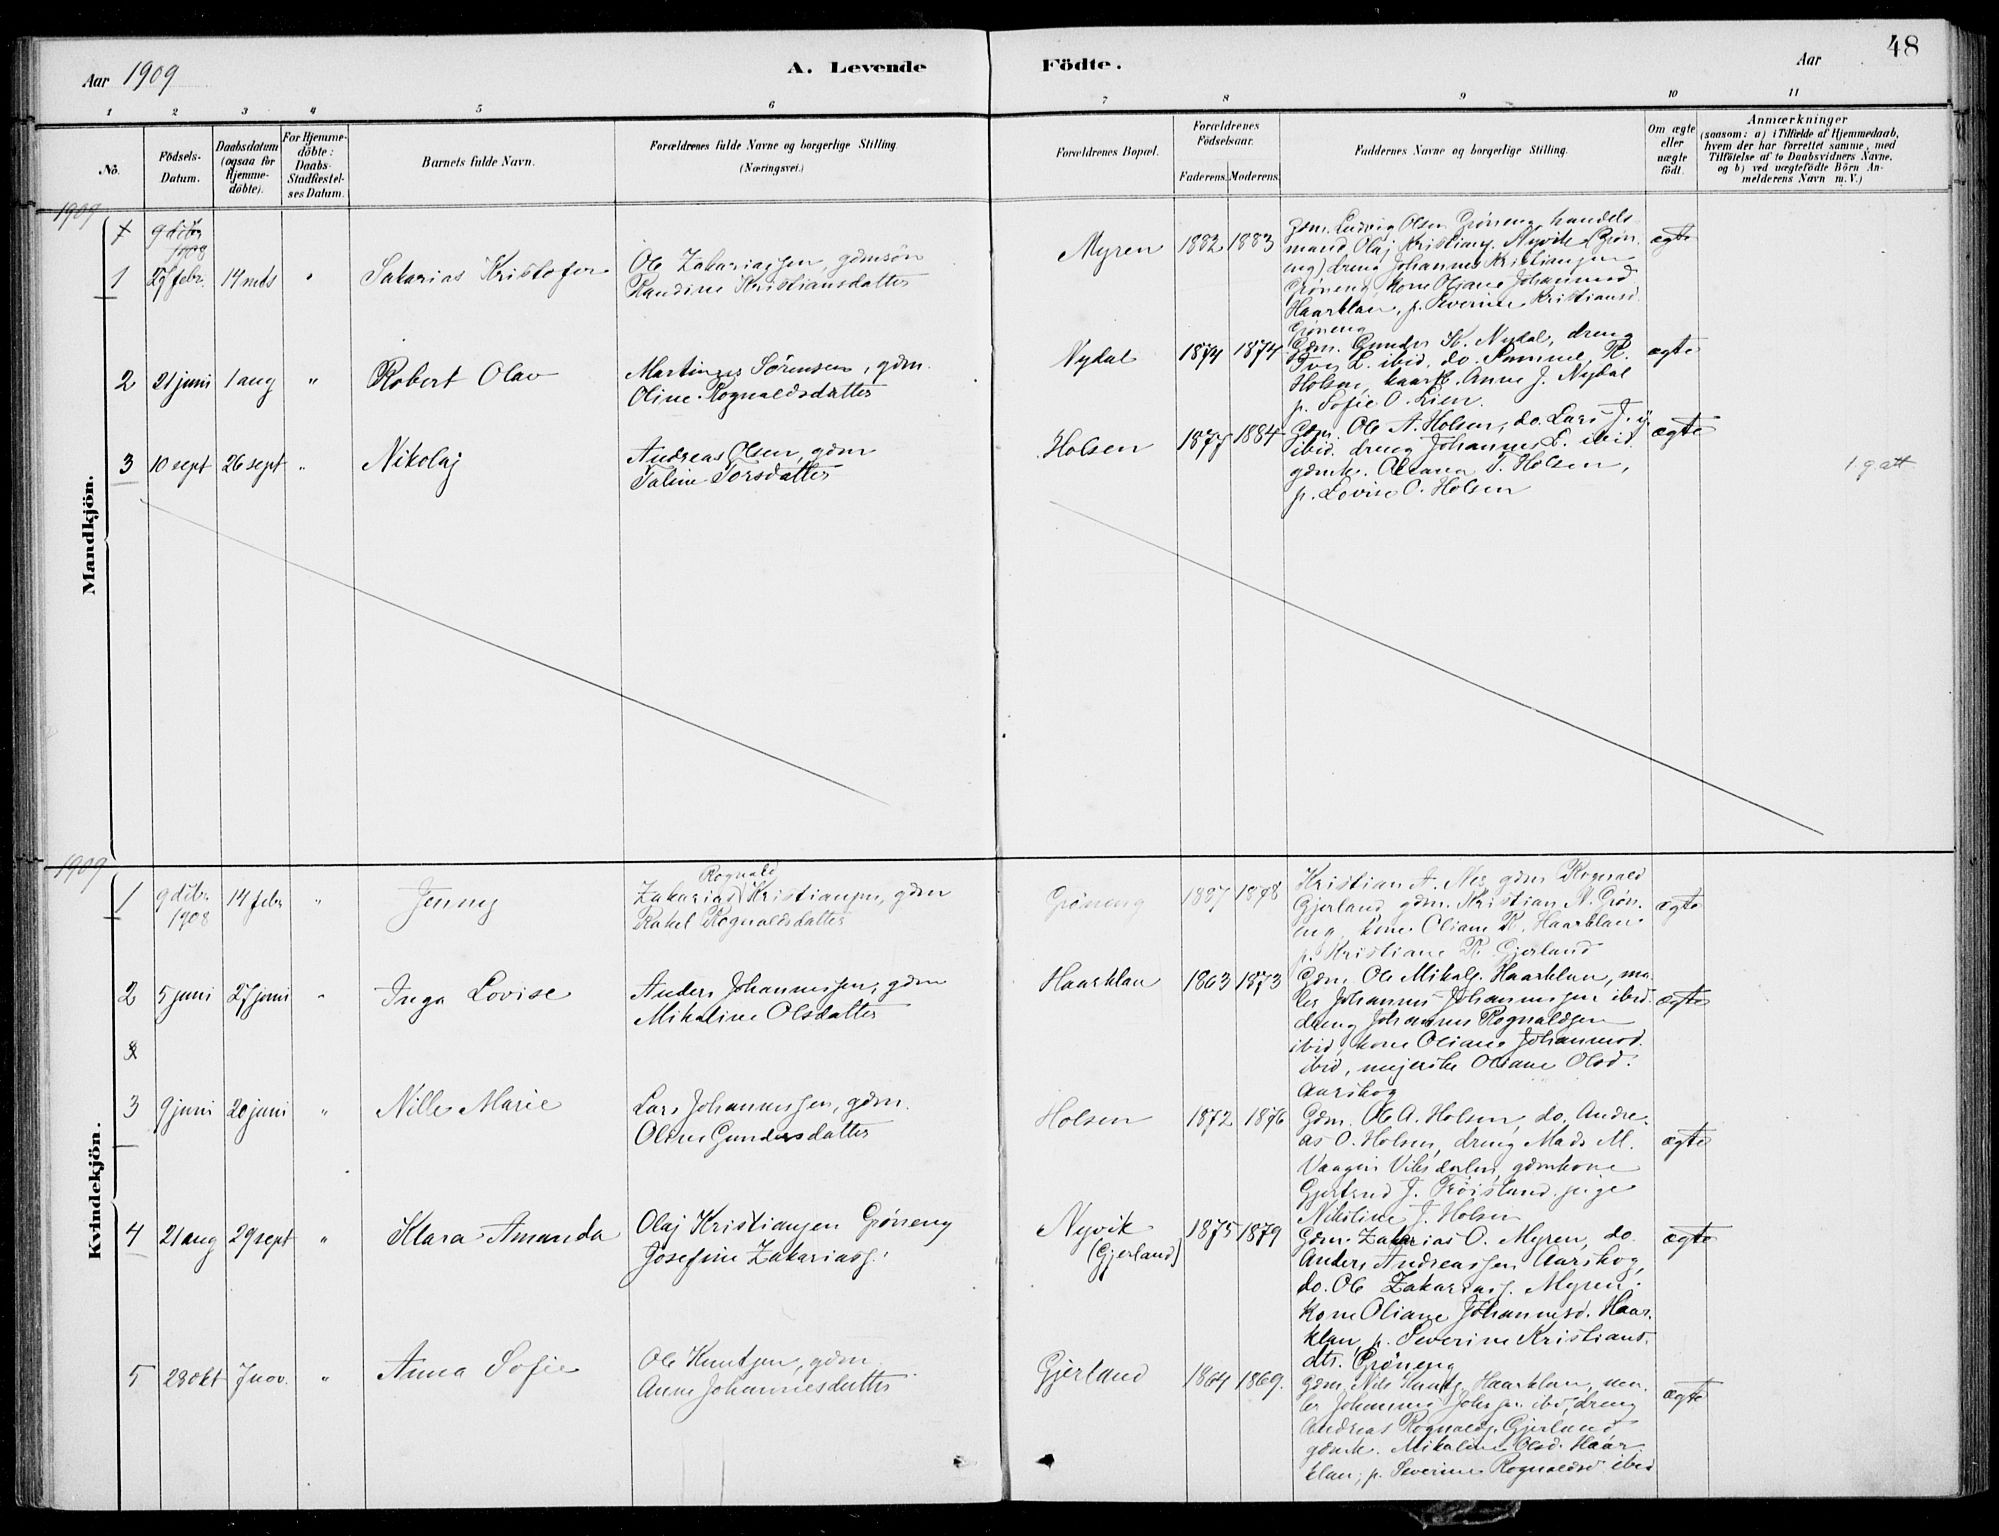 48
Aar 1909
A. Levende
Födte.
Aar
1 2 3 4 5 6 7 8 9 10 11
No.
Födsels-
Datum.
Daabsdatum
(ogsaa for
Hjemme-
döbte).
For Hjemme-
döbte:
Daabs-
Stadfæstel-
ses Datum.
Barnets fulde Navn.
Forældrenes fulde Navne og borgerlige Stilling.
(Næringsvei.)
Forældrenes Bopæl.
Forældrenes
Födselsaar.
Faderens. Moderens.
Faddernes Navne og borgerlige Stilling.
Om ægte
eller
uægte
födt.
Anmærkninger
(saasom: a) i Tilfælde af Hjemmedaab,
hvem der har forrettet samme, med
Tilföielse af to Daabsvidners Navne,
og b) ved uægtefödte Börn An-
melderens Navn m. V.)
Mandkjön.
1909
1 27 febr. 14 mts " Sakarias Kristofer
Ole Zakariassen, gdmsön
Randine Kristiansdatter
Myren 1882 1883
Gdm. Ludvig Olsen Grøneng, handels-
mand Olaj Kristians. Nyvik (Grøn-
eng) dreng Johannes Kristiansen
Grøneng, kone Oliane Johannesd.
Haarklau, p. Severine Kristiansd.
Grøneng
ægte
2 21 juni 1 aug " Robert Olav
Martinus Sørensen, gdm.
Oline Rognaldsdatter
Nydal 1874 1874
Gdm. Gunder K. Nydal, dreng
Iver L. ibid, do. Sammel R.
Holsen, Anne J. Nydal
p. Sofie O. Lien.
ægte
3 10 sept 26 sept " Nikolaj
Andreas Olsen, gdm
Taline Torsdatter
Holsen 1877 1884
Gdm. Ole A. Holsen, do. Lars J.
ibid. dreng Johannes L. ibid
gdmk. Oliana T. Holsen,
p. Lovise O. Holsen
ægte
1 g. att
Kvindekjön.
1909
1 9 dcbr 1908 14 febr " Jenny
Rognald
Zakarias Kristiansen, gdm
Rakel Rognaldsdatter
Grøneng 1887 1878
Kristian A. Nes gdm Rognald
Gjerland gdm. Kristian N. Grøn-
eng, kone Oliane R. Haarklau
p. Kristiane R. Gjerland
ægte
2 5 juni 27 juni " Inga Lovise
Anders Johannessen, gdm
Mikaline Olsdatter
Haarklau 1863 1873
Gdm. Ole Mikalj. Haarklau, ma-
ler Johannes Johannessen ibid.
dreng Johannes Rognaldsen
ibid, kone Oliane Johannesd.
ibid, mejerske Oliane Olsd.
Aarskog
ægte
3 9 juni 20 juni " Nille Marie
Lars Johannessen, gdm.
Oline Gundersdatter
Holsen 1872 1876
Gdm. Ole A. Holsen, do. Andre-
as O. Holsen, dreng Mads M.
Vaagen Viksdalen, gdmkone
Gjertrud J. Frøisland. pige
Nikoline J. Holsen
ægte
4 21 aug 29 sept " Klara Amanda
Olaj Kristiansen Grøneng
Josefine Zakariasd.
Nyvik
(Gjerland)
1875 1879
Gdm. Zakarias O. Myren, do.
Anders Andreassen Aarskog,
do. Ole Zakarias. Myren.
Kone Oliane Johannesd. Haar-
klau, p. Severine Kristians-
dtr. Grøneng
ægte
5 28 okt 7 nov. " Anna Sofie
Ole Knutsen, gdm.
Anne Johannesdatter
Gjerland 1864 1869.
Gdm. Nils Knuts. Haarklau, ma-
ler Johannes Johssen ibid, dreng
Andreas Rognalds. Gjerland
gdmk. Mikaline Olsd. Haar-
klau, p. Severine Rognaldsd ibid
ægte